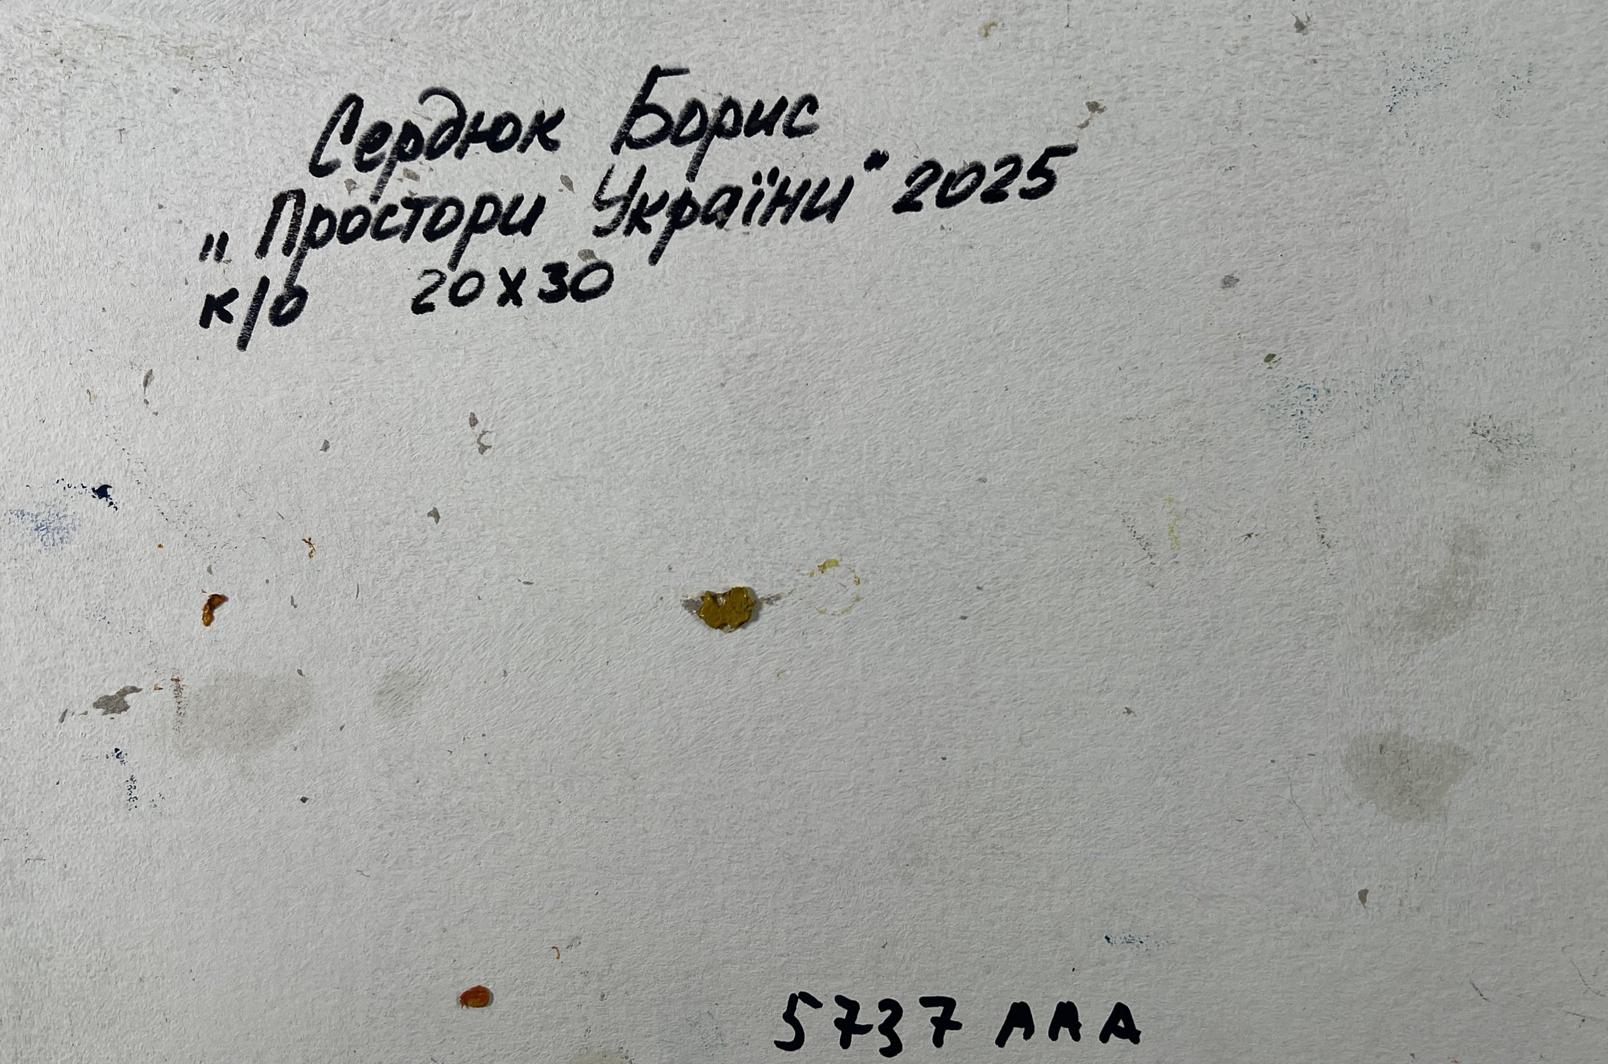 Сердюк Борис
„Простори України" 2025
к/о 20х30
5737 ААА